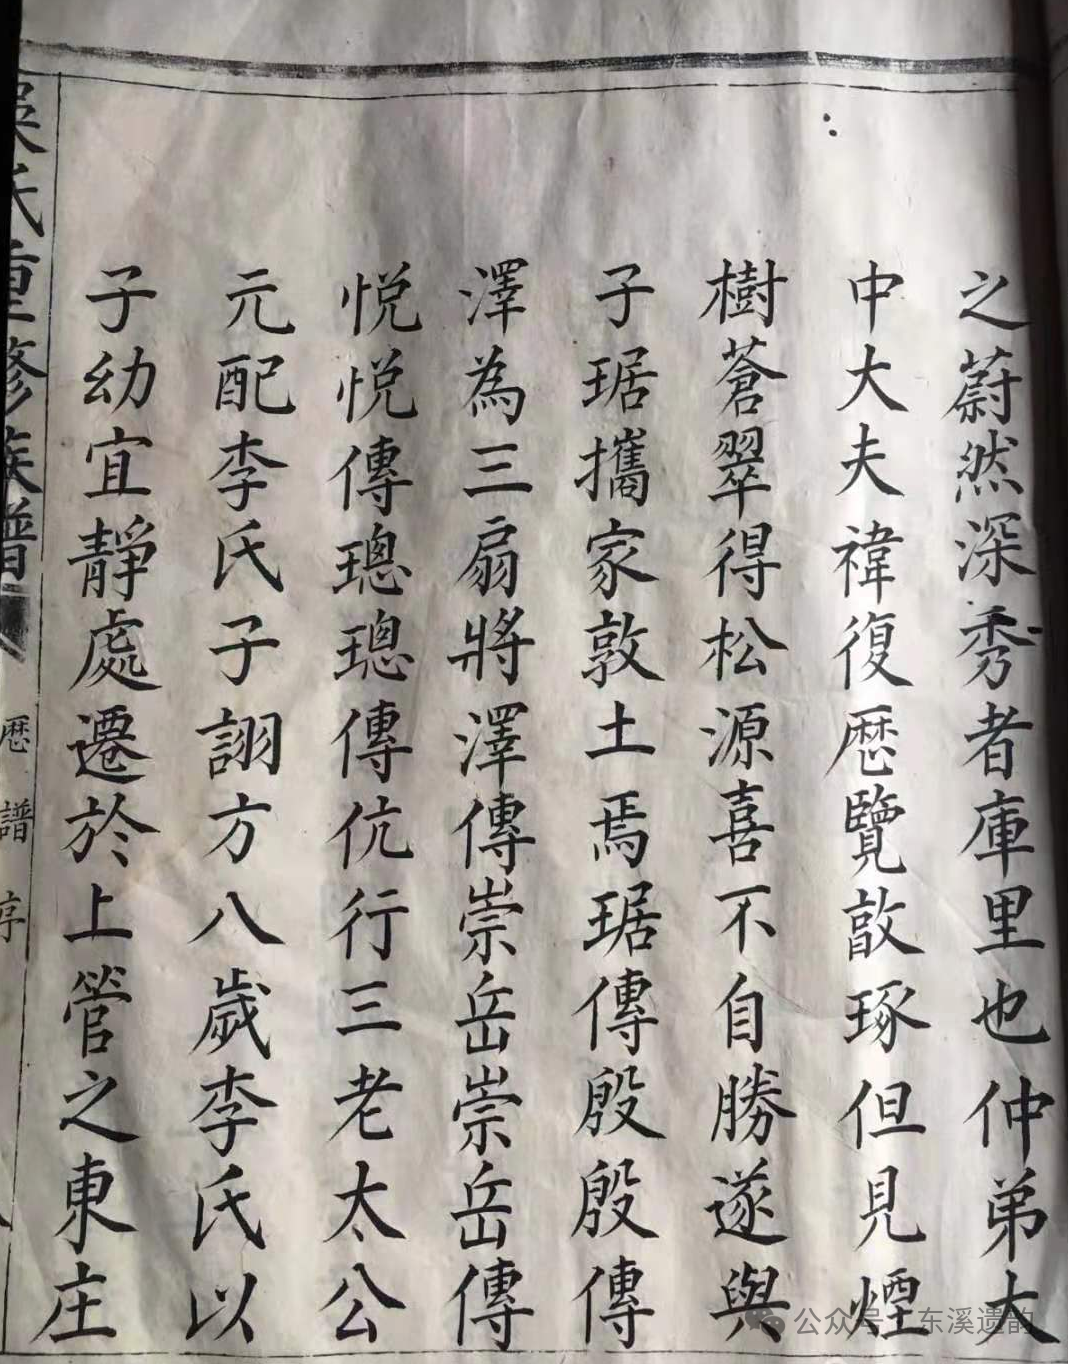 之蔚然深秀者庫里也仲弟大
中大夫禕復歷覽敔琢但見煙
樹蒼翠得松源喜不自勝遂與
子琚攜家敦土焉琚傳殷殷傳
澤為三扇將澤傳崇岳崇岳傳
悦悦傳璁璁傳伉行三老太公
元配李氏子詡方八歲李氏以
子幼宜靜處遷於上管之東庄
吳氏重修族譜
歷譜序
公众号·东溪遗韵